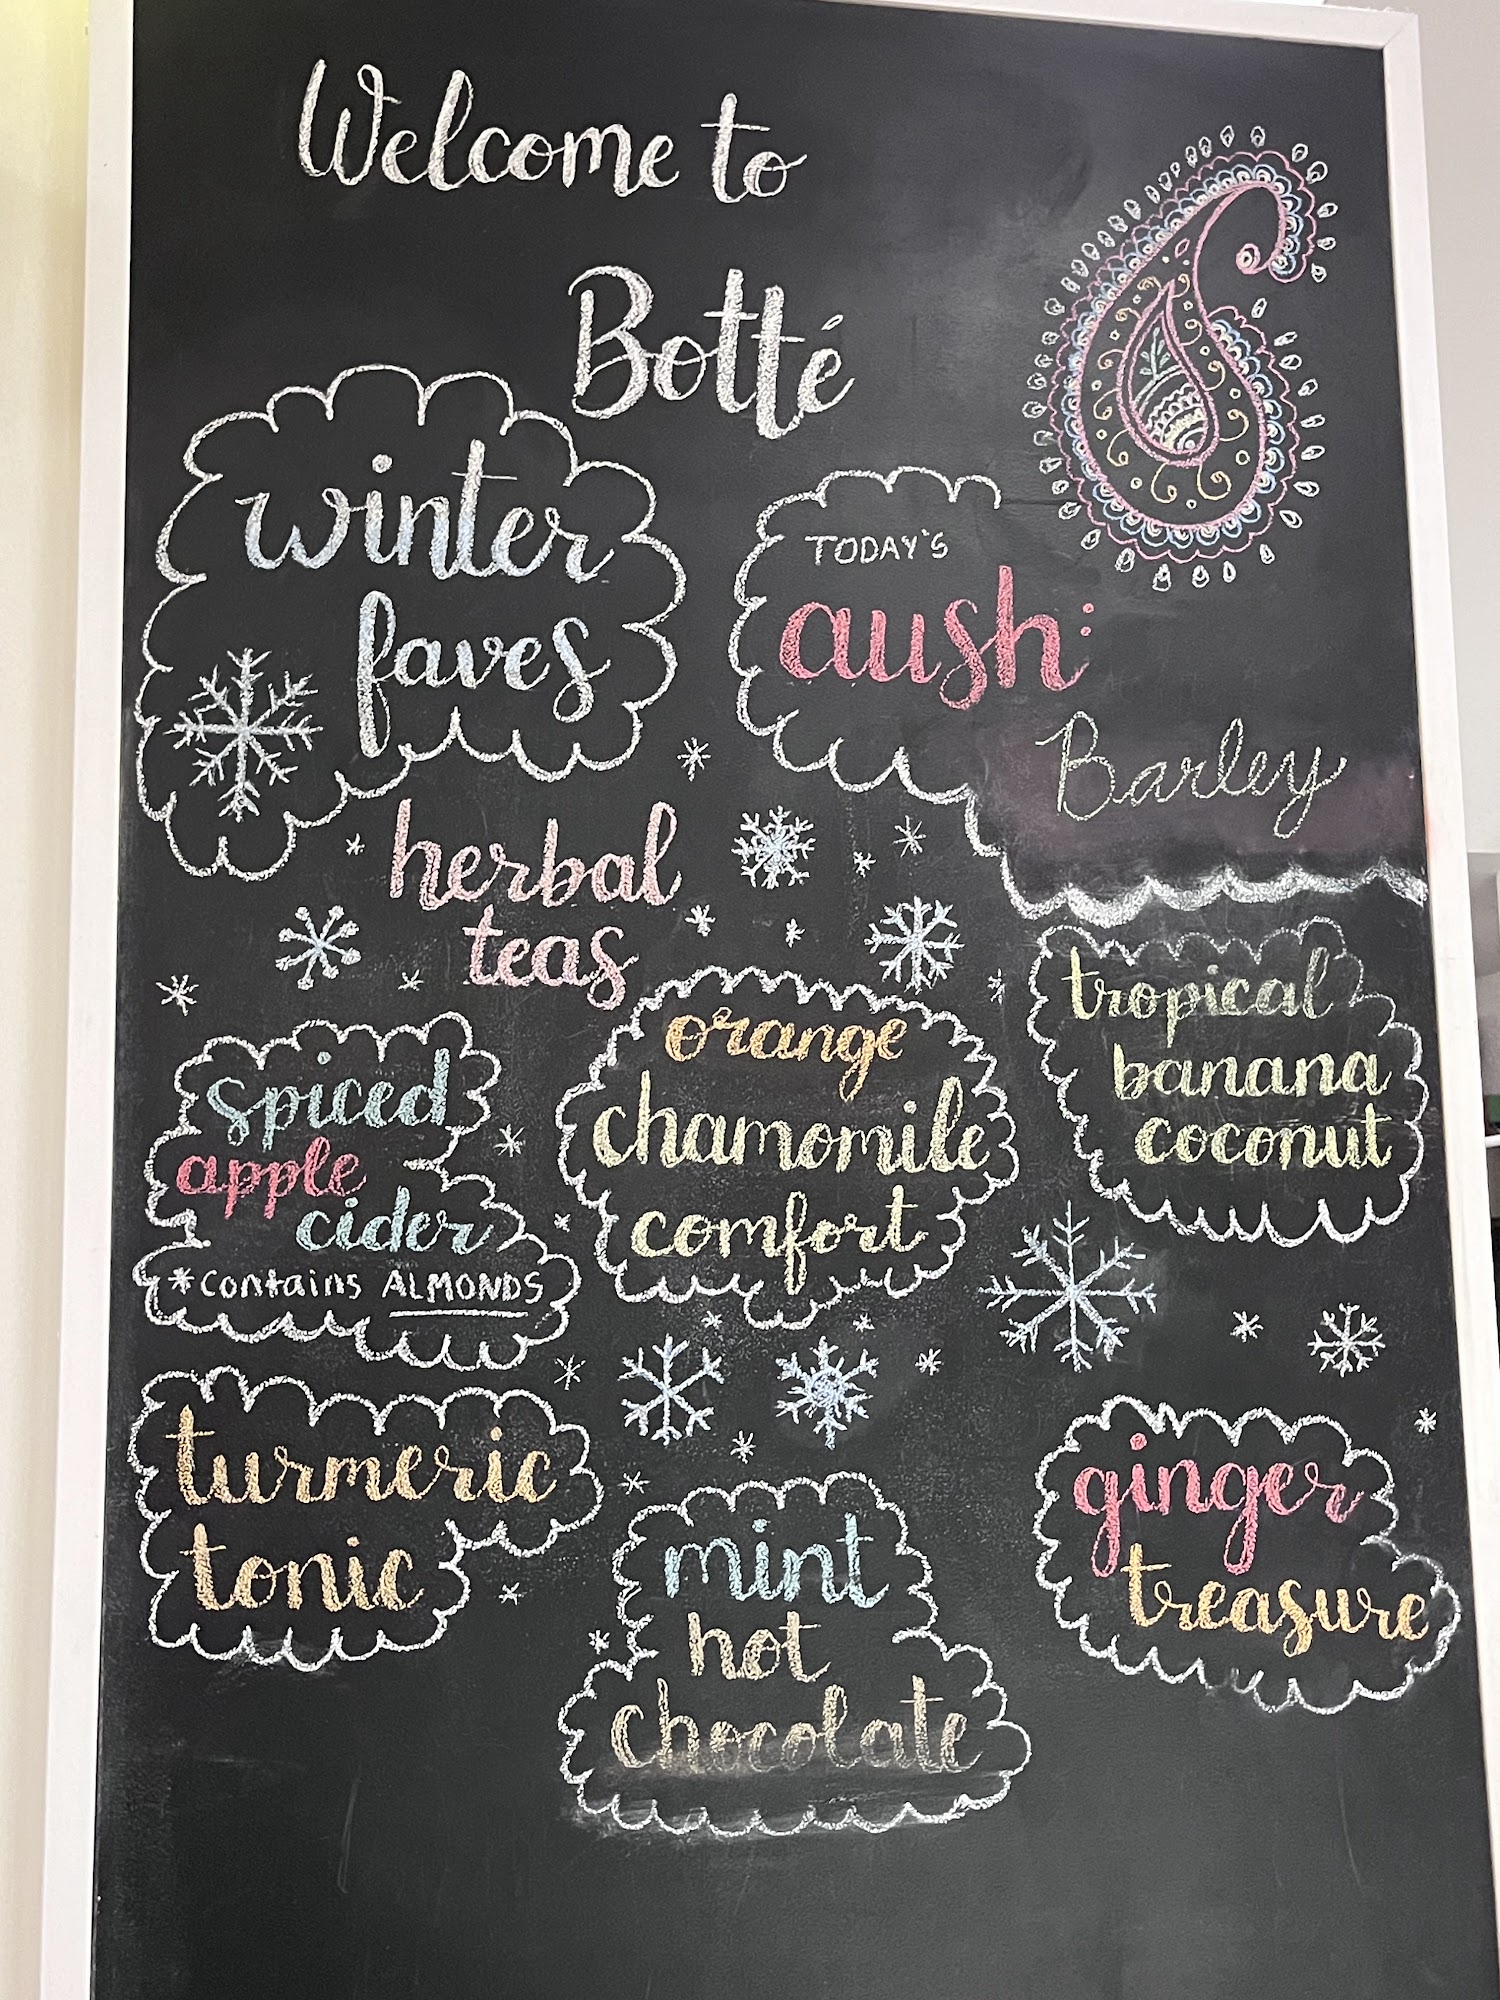 Welcome to
Botté
winter
faves
TODAY'S
aush:
Barley
herbal
teas
spiced
apple
cider
*Contains ALMONDS
orange
chamomile
comfort
tropical
banana
coconut
turmeric
tonic
mint
hot
chocolate
ginger
treasure